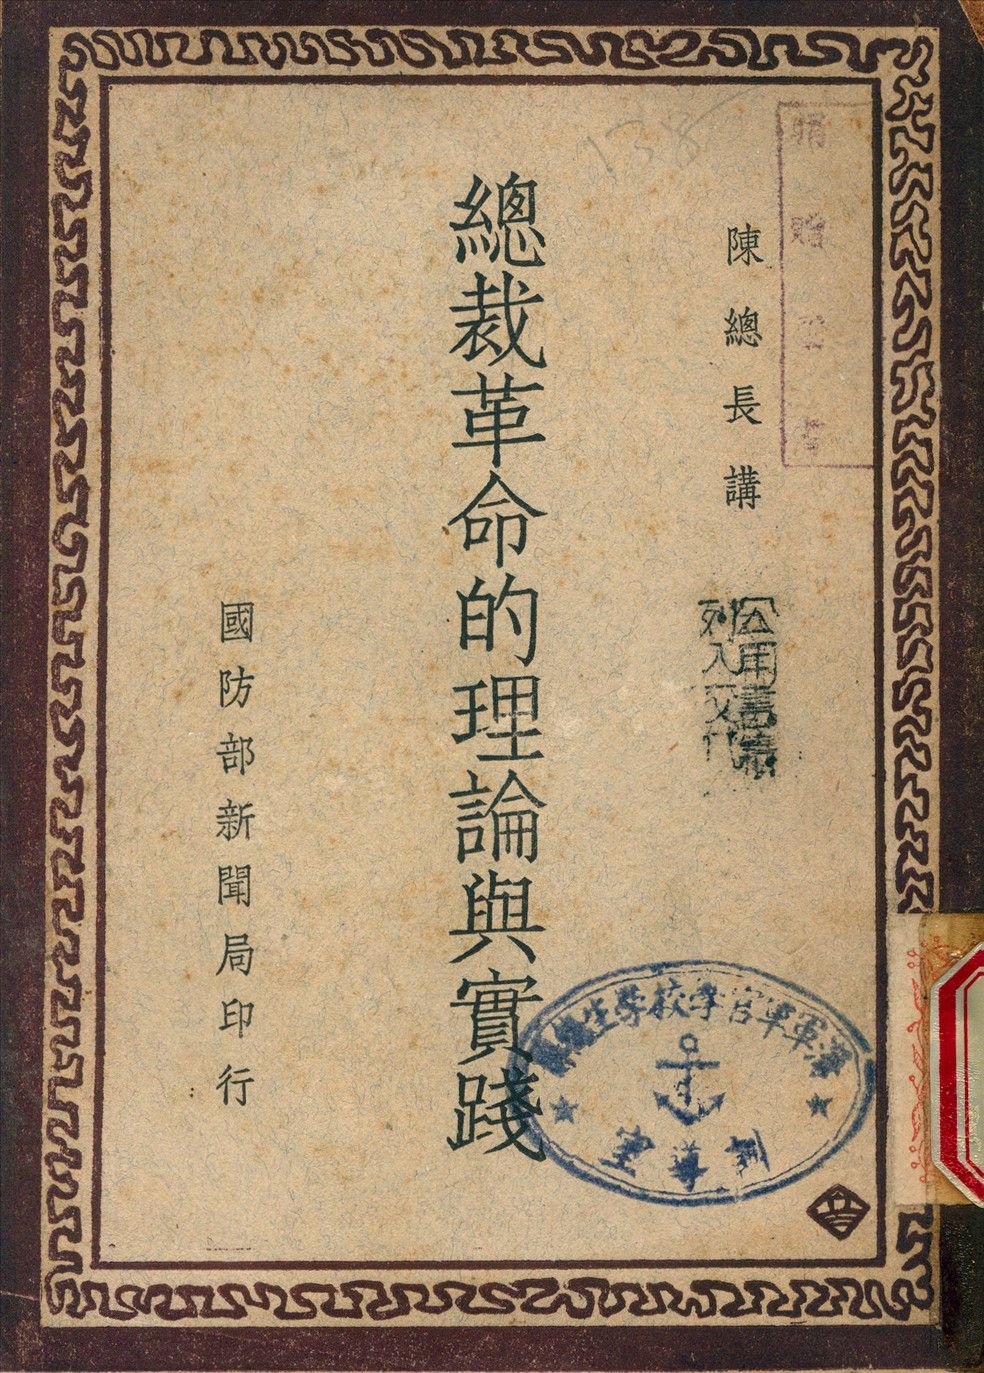 陳總長講
總裁革命的理論與實踐
國防部新聞局印行
公用書籍
列入交代
海軍軍官學校學生總隊
訓導室
138